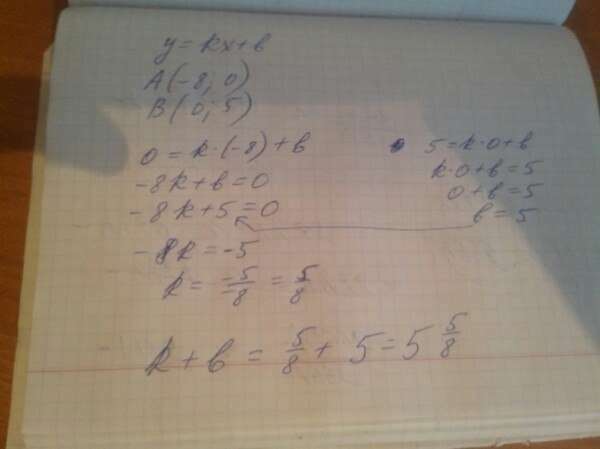 y = kx + b
A(-8; 0)
B(0; 5)
0 = k·(-8) + b
-8k + b = 0
-8k + 5 = 0
-8k = -5
k = -5/-8 = 5/8
5 = k·0 + b
k·0 + b = 5
0 + b = 5
b = 5
k + b = 5/8 + 5 = 5 5/8